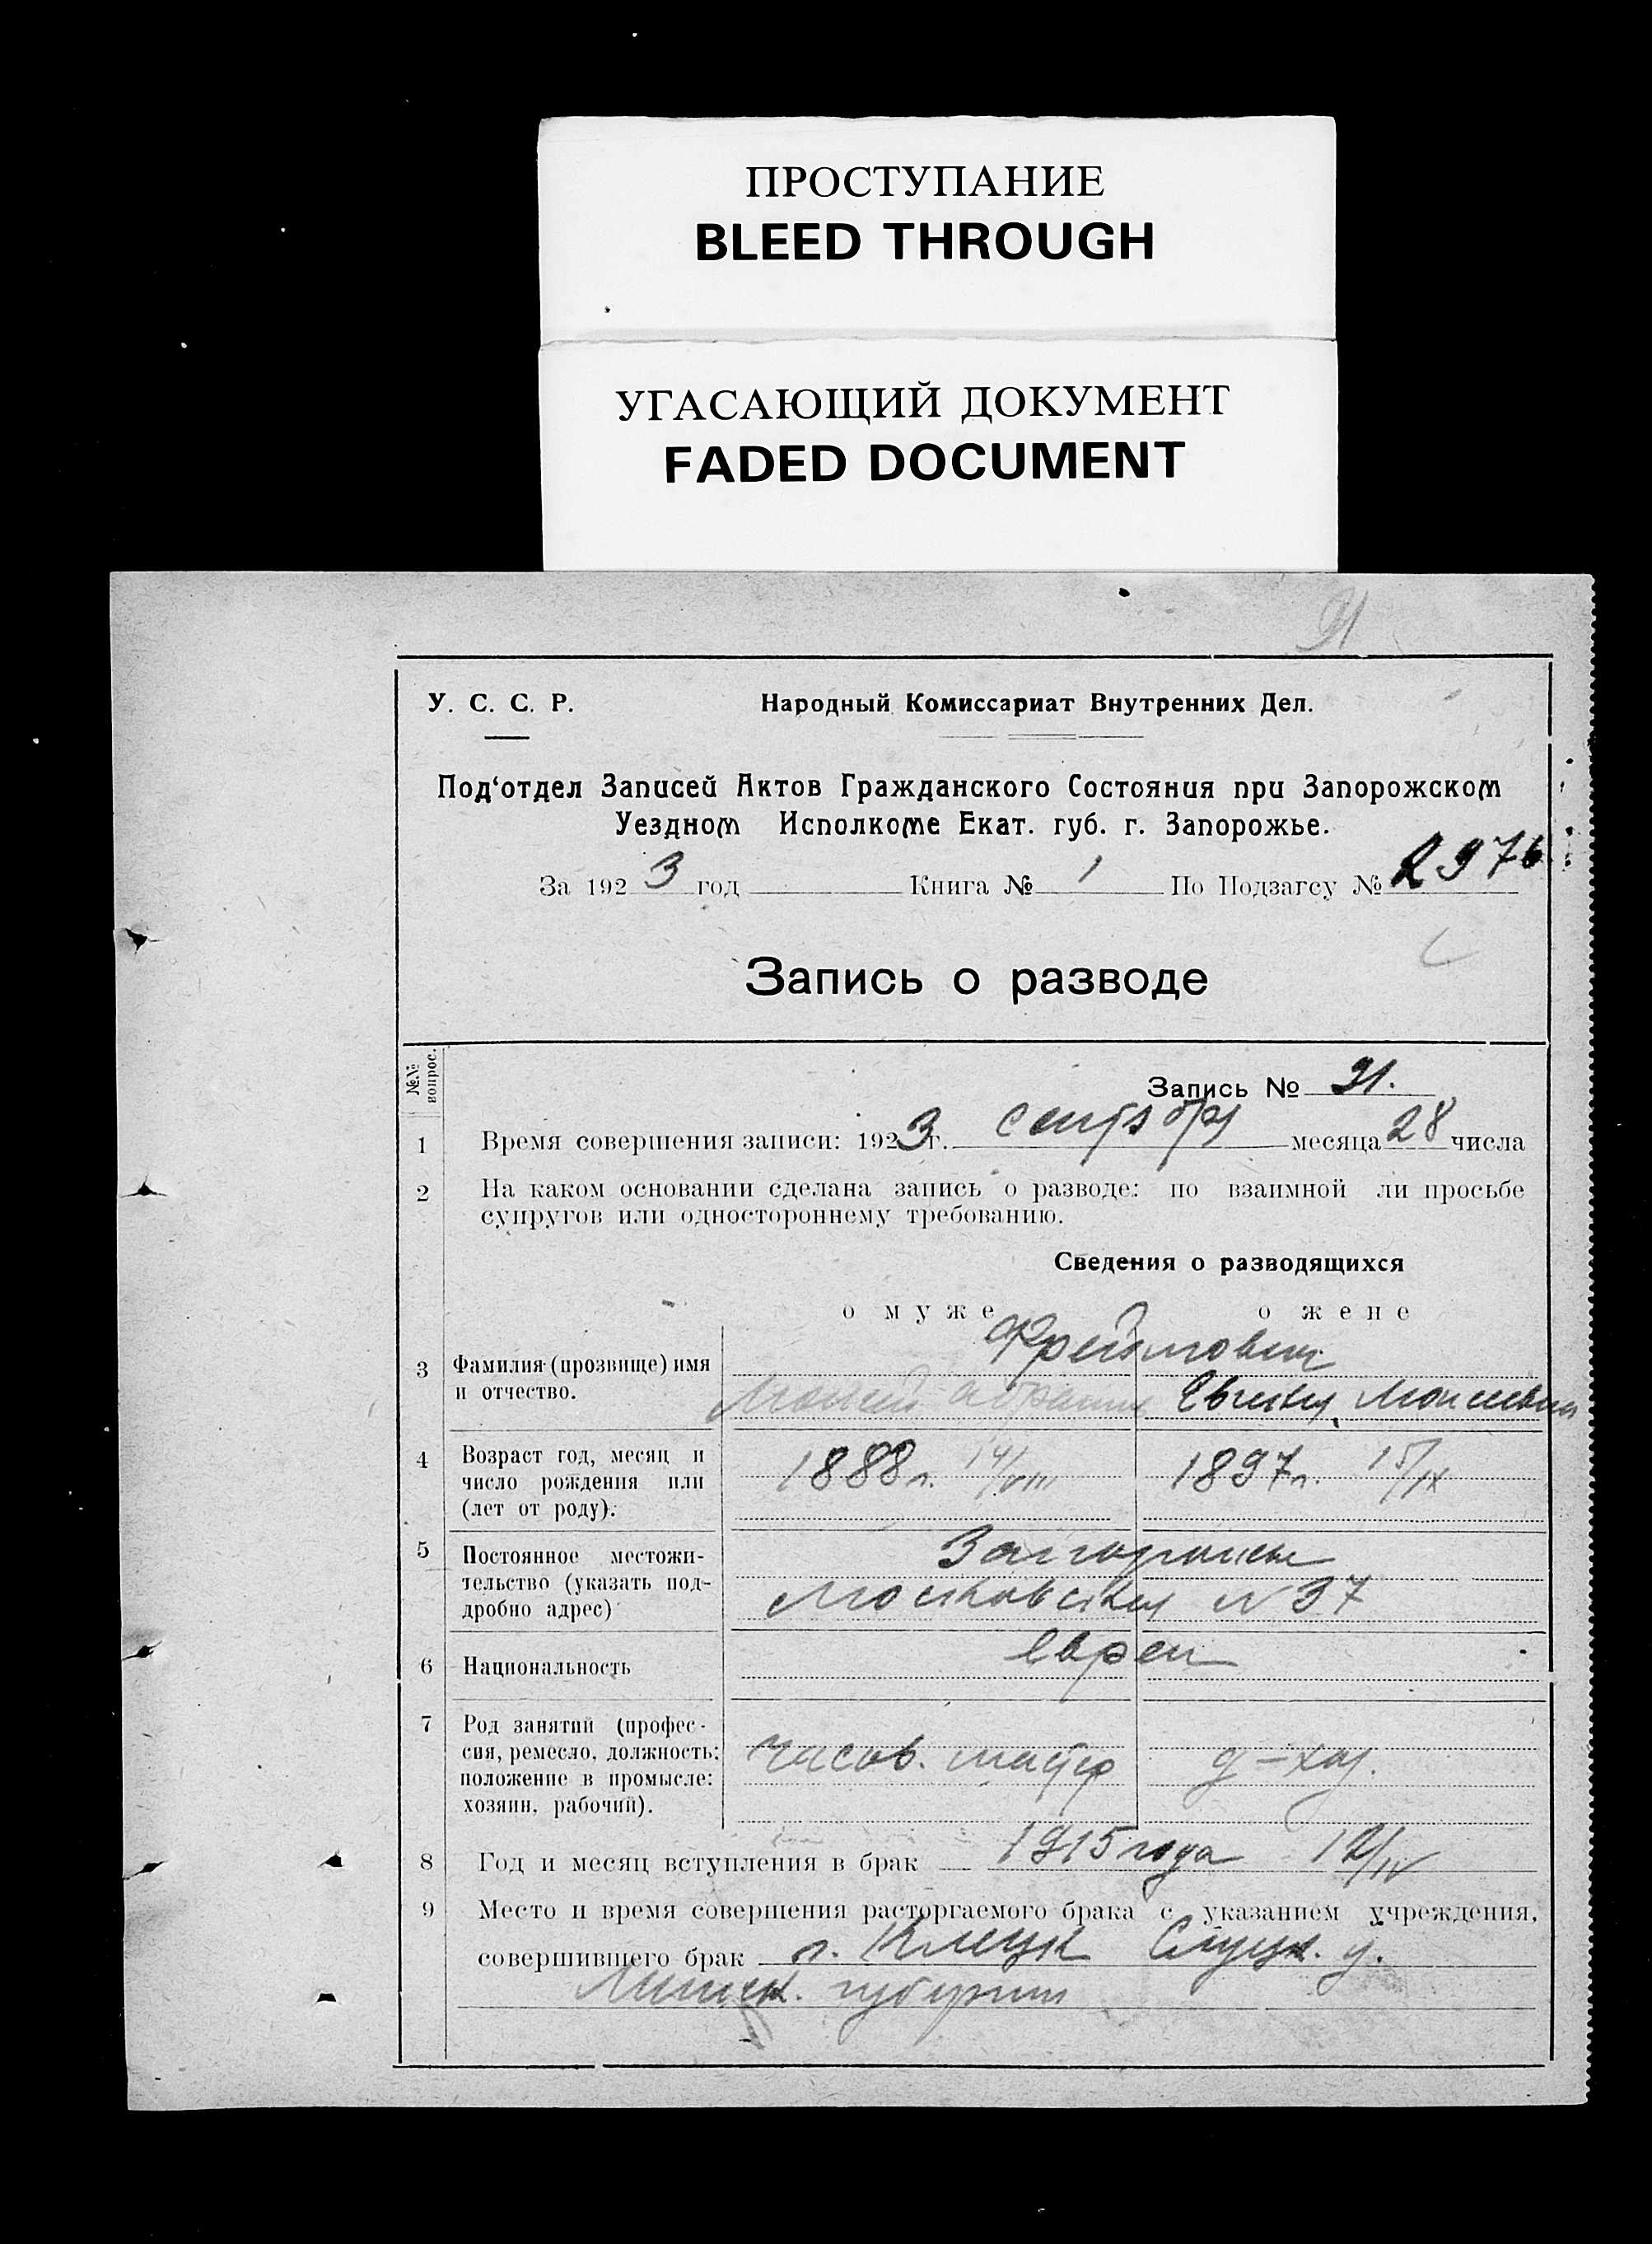 ПРОСТУПАНИЕ
BLEED THROUGH
УГАСАЮЩИЙ ДОКУМЕНТ
FADED DOCUMENT
У. С. С. Р. Народный Комиссариат Внутренних Дел.
Под‘отдел Записей Актов Гражданского Состояния при Запорожском
Уездном Исполкоме Екат. губ. г. Запорожье.
За 1923 год Книга № 1 По Подзагсу № 2976
Запись о разводе
№№ вопрос.
Запись № 91.
1 Время совершения записи: 1923 г. сентябр месяца 28 числа
2 На каком основании сделана запись о разводе: по взаимной ли просьбе
супругов или одностороннему требованию.
Сведения о разводящихся
о муже о жене
3 Фамилия (прозвище) имя
и отчество.
4 Возраст год, месяц и
число рождения или
(лет от роду).
1888 г. 14/VIII 1897 г. 15/IX
5 Постоянное местожи-
тельство (указать под-
дробно адрес)
Запорожье
Московская № 37
6 Национальность
евреи
7 Род занятий (профес-
сия, ремесло, должность;
положение в промысле:
хозяин, рабочий).
часов. мастер д-хоз.
8 Год и месяц вступления в брак 1915 года 12/IV
9 Место и время совершения расторгаемого брака с указанием учреждения,
совершившего брак г. Клецк Слуцк. у.
Минск. губернии